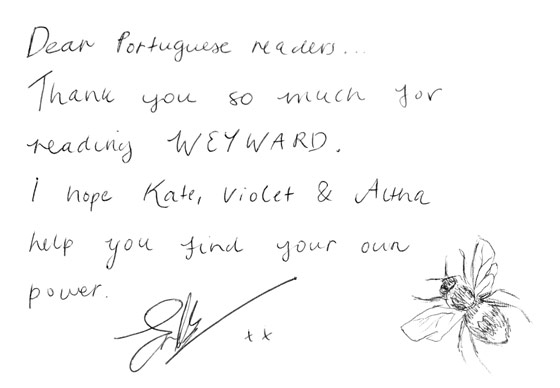 Dear Portuguese readers...
Thank you so much for
reading WEYWARD.
I hope Kate, Violet & Altha
help you find your own
power.
x x